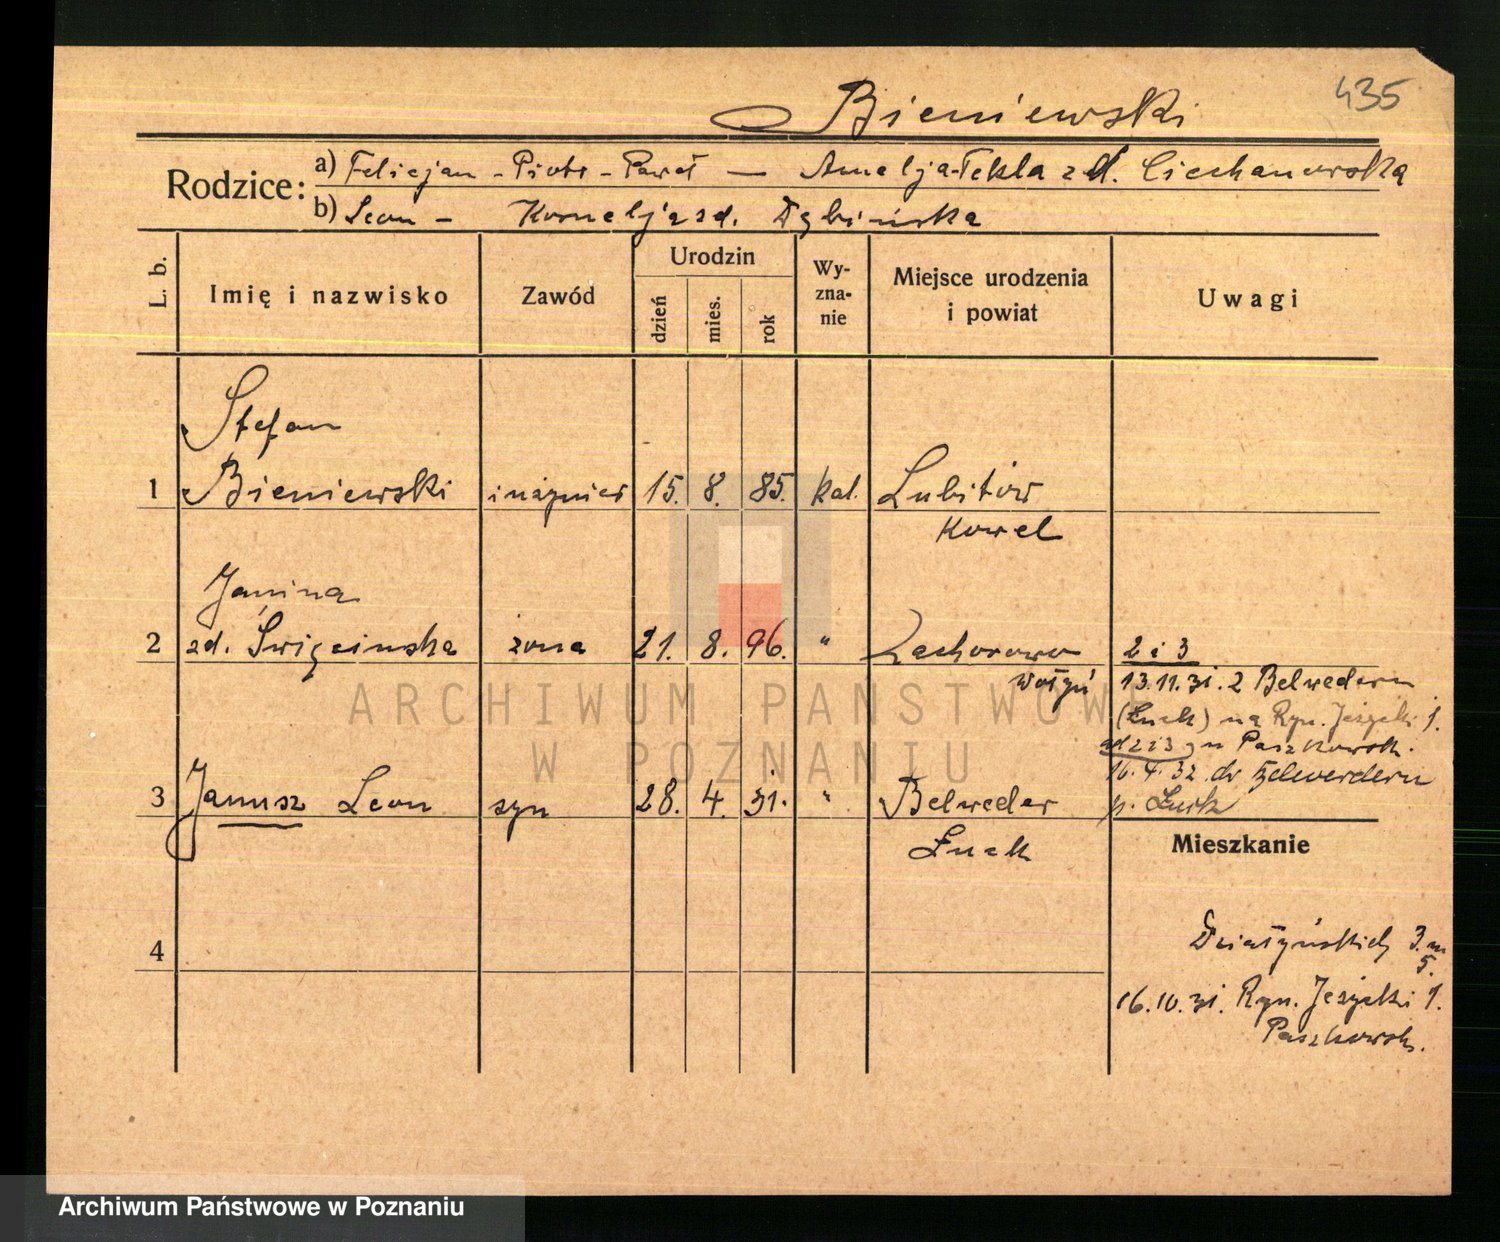 435
Bieniewski
Rodzice:
a) Felicjan - Piotr - Paweł — Amelja-Tekla zd. Ciechanowska
b) Leon - Kornelja zd. Dąbińska
L. b.
Imię i nazwisko
Zawód
Urodzin
dzień
mies.
rok
Wy-
zna-
nie
Miejsce urodzenia
i powiat
Uwagi
Stefan
1 Bieniewski inżynier 15. 8. 85. kat. Lubitów
Kowel
Janina
2 zd. Święcinska żona 21. 8. 96. " Zachorowo
Wołyń
2 i 3
13.11.31. z Belwederu
(Łuck) na Ryn. Jeżycki 1.
Paszkowsk.
16.4.32 do Belwederu
p. Łuck
3 Janusz Leon syn 28. 4. 31. " Belweder
Łuck
Mieszkanie
4
Działyńskich 3. m
5.
16.10.31. Ryn. Jeżycki 1.
Paszkowsk.
ARCHIWUM PAŃSTWOWE
W POZNANIU
Archiwum Państwowe w Poznaniu